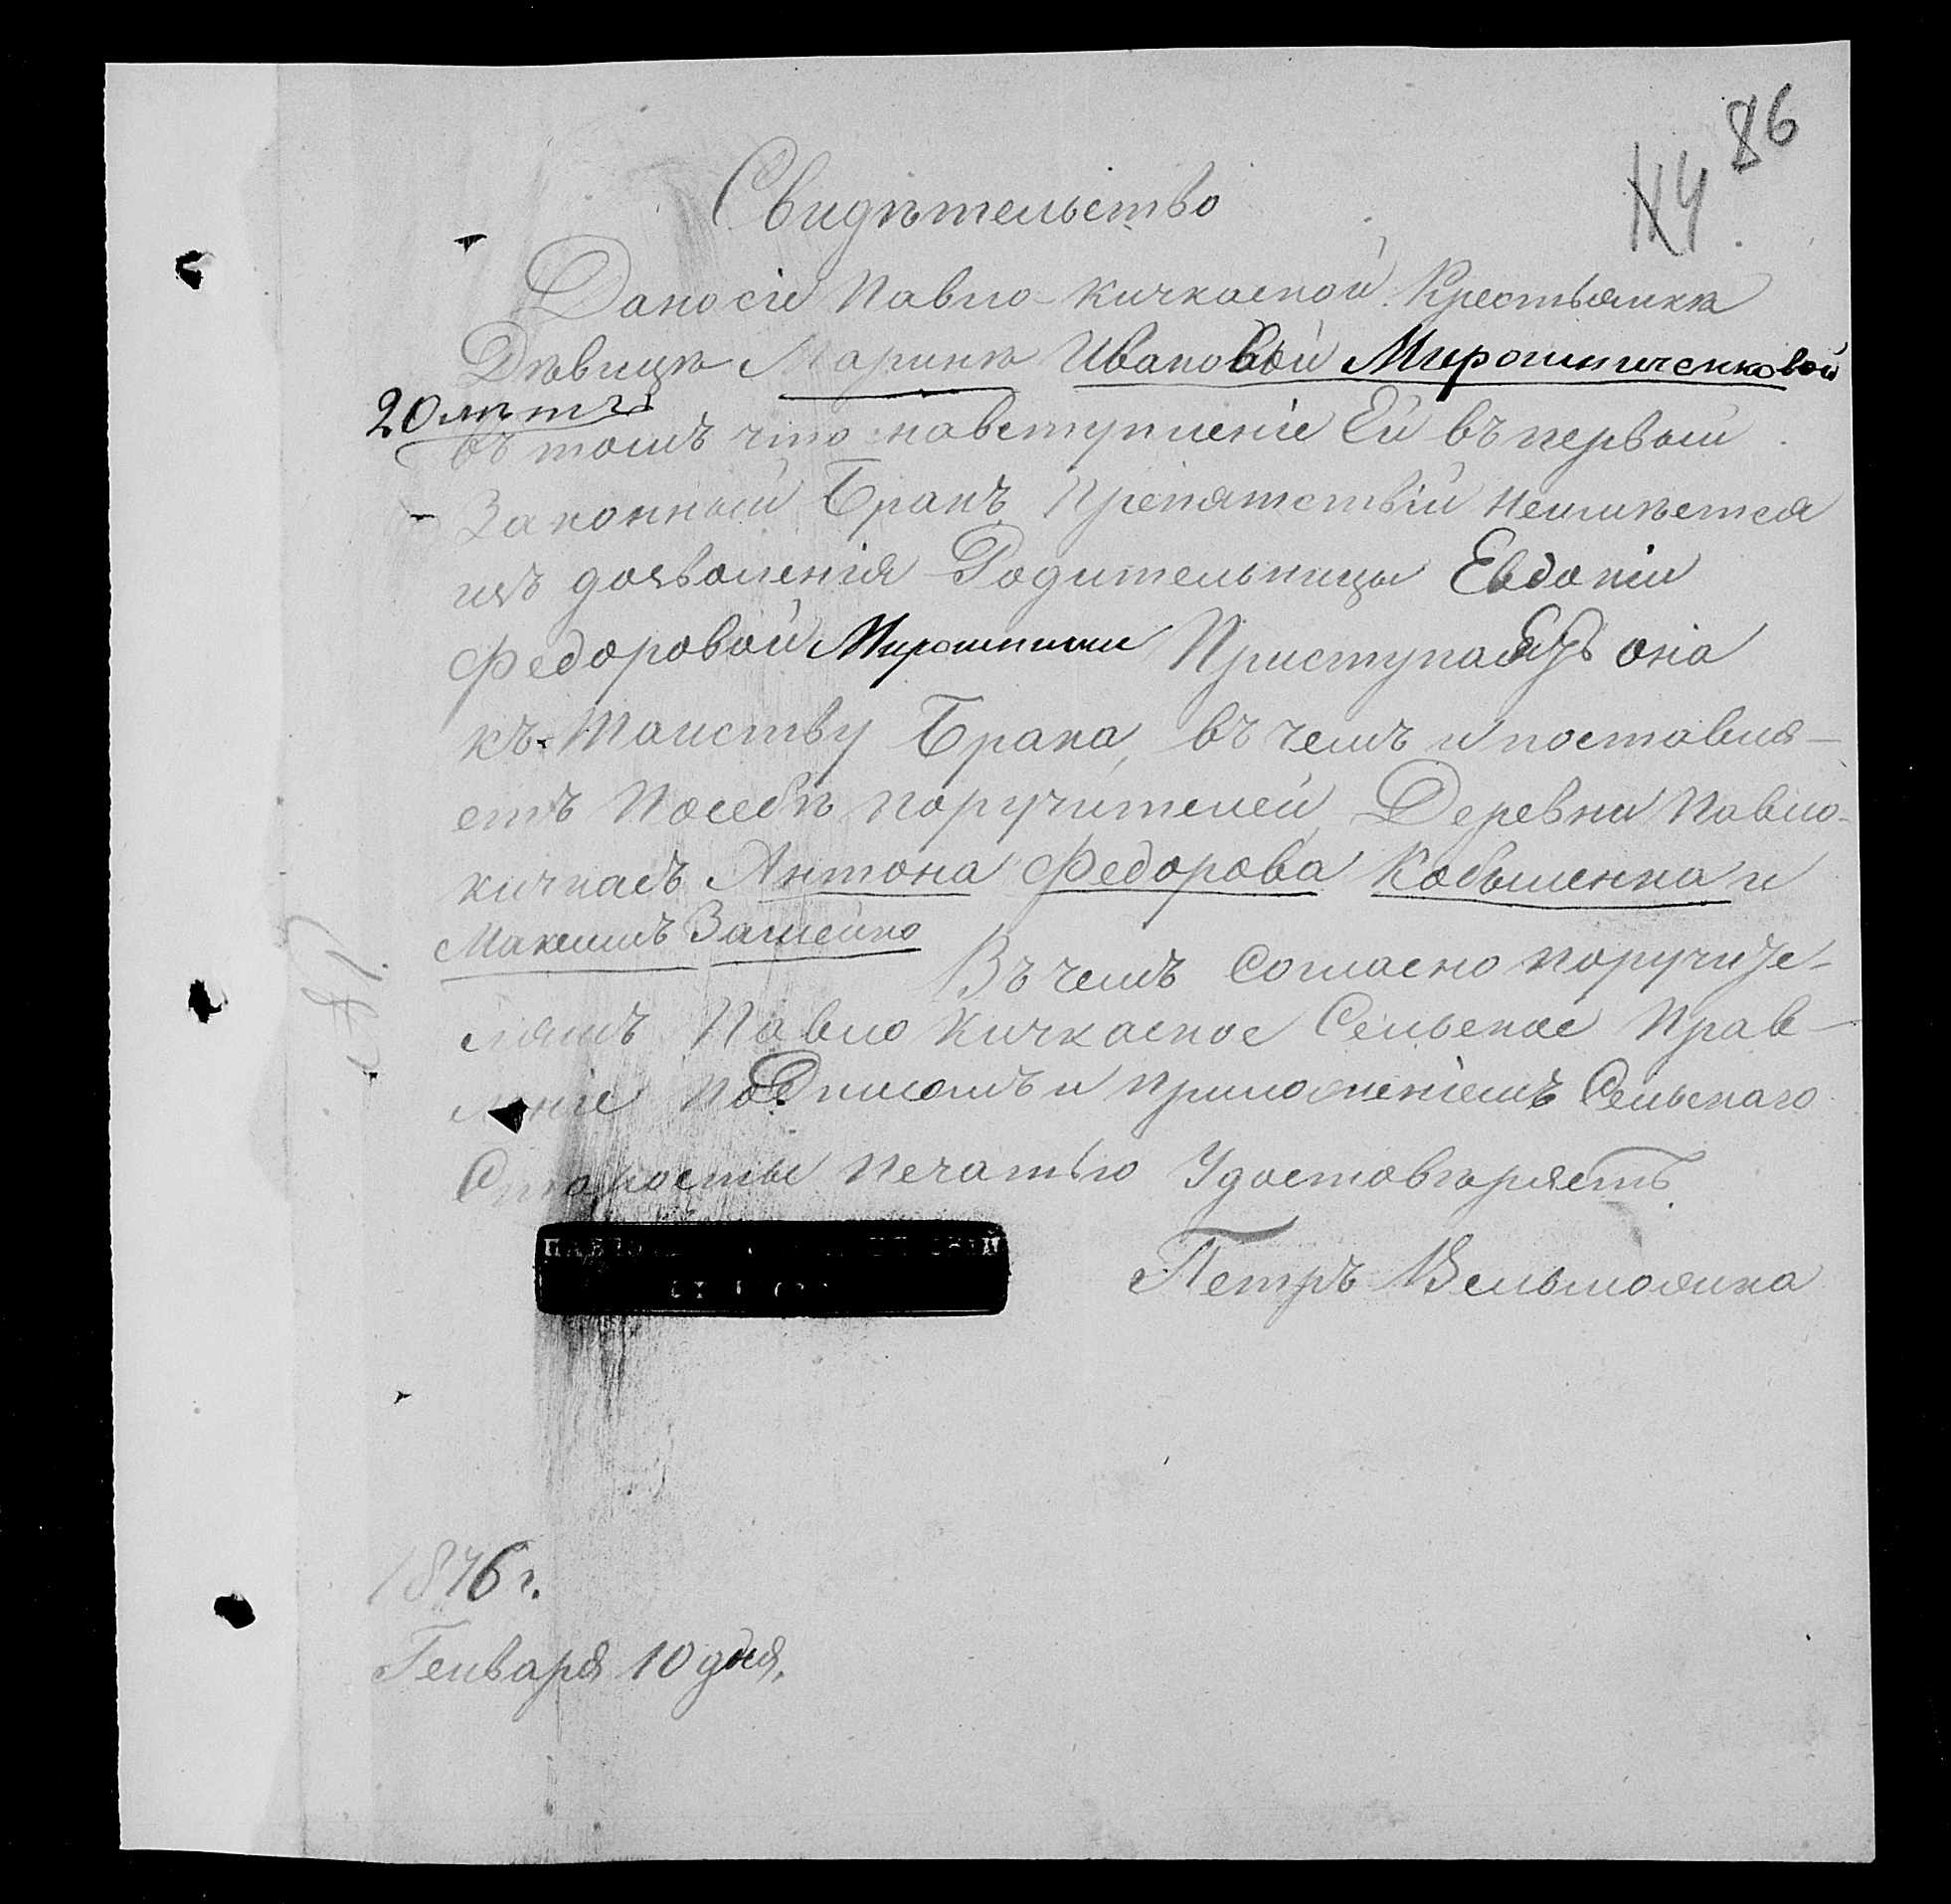 86
114
Свидѣтельство
Дано сіе Павло-Кичкаской Крестьянкѣ
Дѣвицѣ Маринѣ Ивановой Мирошниченковой
20 лѣтъ
въ томъ что навступленіе Ей въ первый
Законный Бракъ Препятствій неимѣется
изъ дозволенія Родительницы Евдокіи
Федоровой Приступаетъ она
къ Таиству Брака, въ чемъ и поставля-
етъ Посебѣ поручителей Деревни Павло-
кичкасъ Антона Федорова Кобыленка и
Максимъ Залейко
Въ чемъ Согласно поручите-
лямъ Павло Кичкаское Сельское Прав-
леніе подписомъ и приложеніемъ Сельскаго
Старосты печатью Удостовѣряетъ
Петръ
1876 г.
Генваря 10 дня.